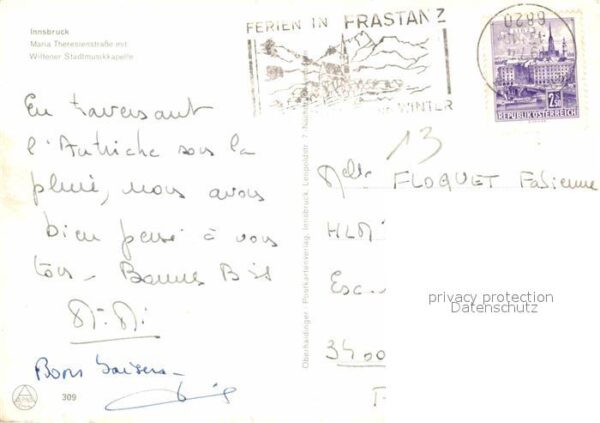 Innsbruck
Maria Theresienstraße mit
Wiltener Stadtmusikkapelle
FERIEN IN FRASTANZ
WINTER
6820
2.50
REPUBLIK ÖSTERREICH
En traversant
l'Autriche sous la
pluie, nous avons
bien pensé à vous
tous - Bonnes Bises
Bons baisers
309
Oberhaidinger, Postkartenverlag, Innsbruck, Leopoldstr. 7, Nachdruck
13
Melle FLOQUET Fabienne
HLM
Esc
3400
privacy protection
Datenschutz